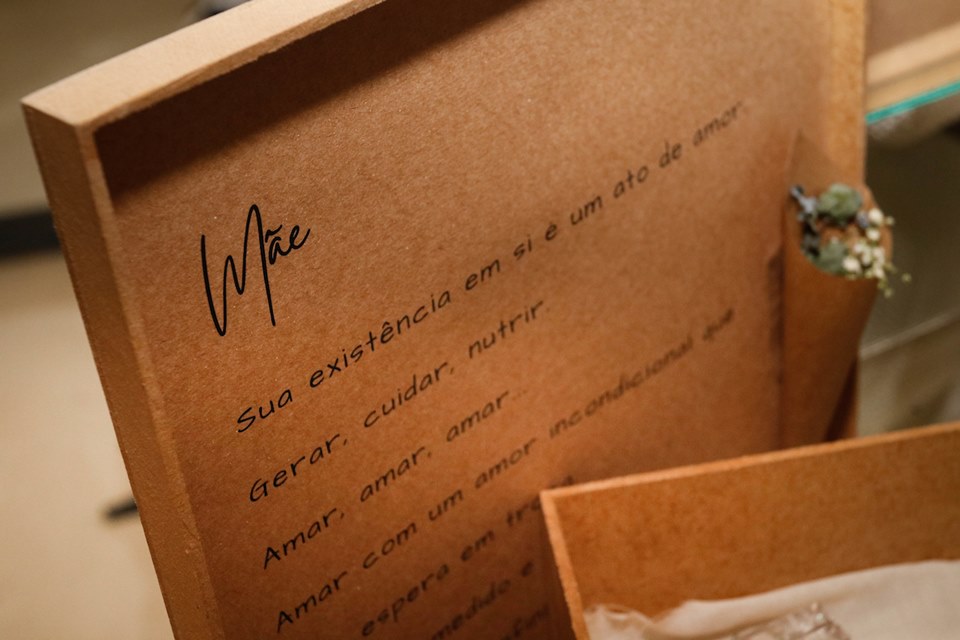 Mãe
Sua existência em si é um ato de amor.
Gerar, cuidar, nutrir.
Amar, amar, amar...
Amar com um amor incondicional que
espera em
medido e